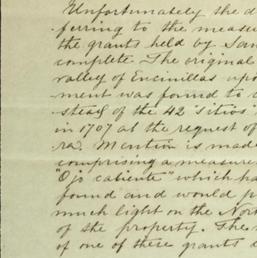 Unfortunately the d
ferring to the measu
the grants held by San
complete. The original
valley of Encinillas upo
ment was found to c
stead of the 42 "sitios"
in 1707 at the request of
ra. Mention is made
comprising a measure
"Ojo caliente" which ha
found and would p
much light on the Nor
of the property. The
of one of these grants